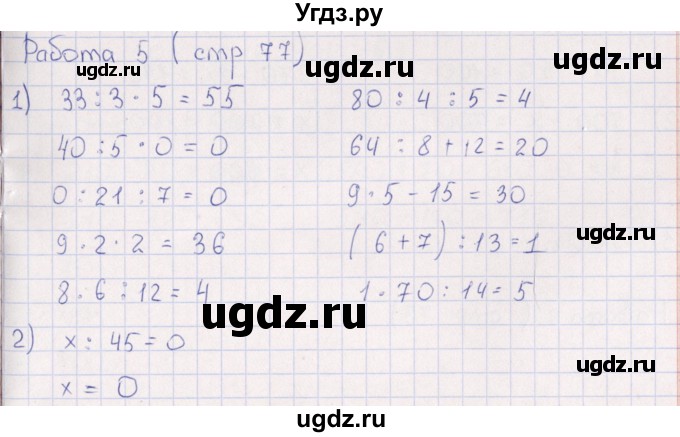 Угдз.ру
Работа 5 (стр 77)
ugdz.ru
ugdz.ru
ugdz.ru
1) 33 : 3 · 5 = 55
80 : 4 : 5 = 4
40 : 5 · 0 = 0
64 : 8 + 12 = 20
ugdz.ru
ugdz.ru
0 : 21 : 7 = 0
9 · 5 - 15 = 30
9 · 2 · 2 = 36
(6 + 7) : 13 = 1
ugdz.ru
ugdz.ru
8 · 6 : 12 = 4
1 · 70 : 14 = 5
ugdz.ru
2) x : 45 = 0
ugdz.ru
x = 0
ugdz.ru